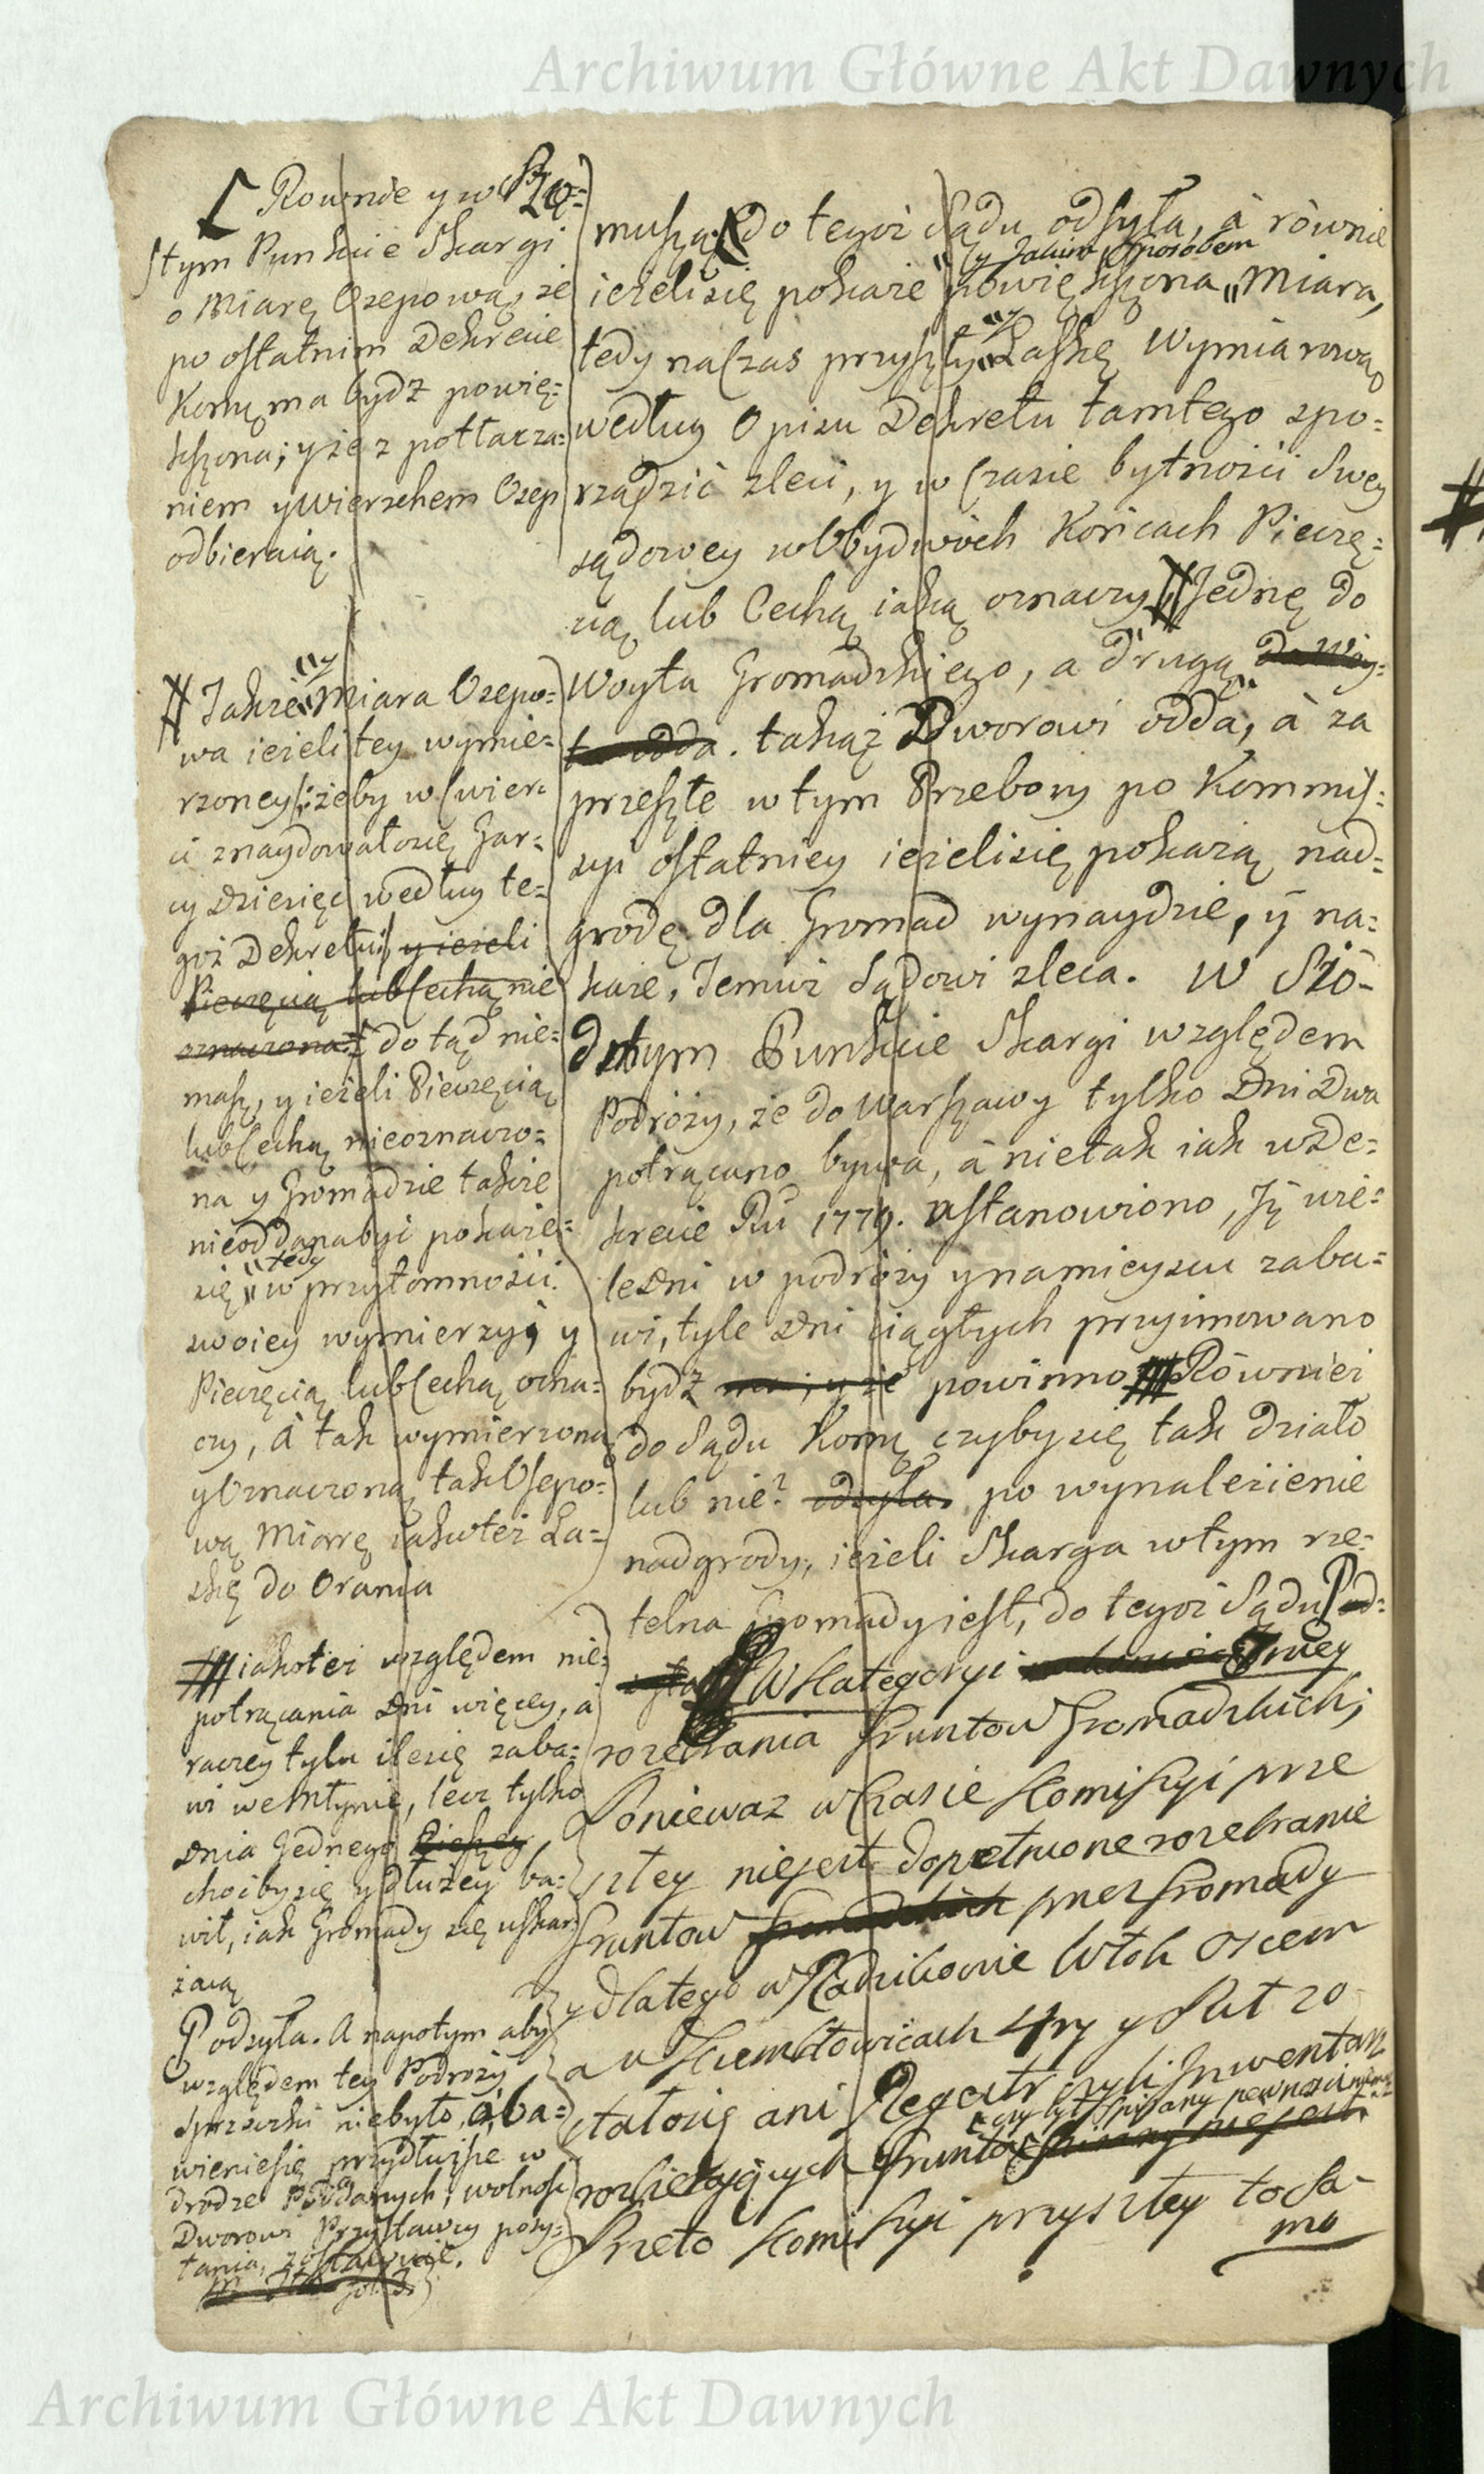 Archiwum Główne Akt Dawnych
Rownie y w Szo=
stym Punkcie Skargi
o Miarę Osepową, że
po ostatnim Dekrecie
Komą ma bydź powię=
kszona; y że z potłacza=
niem y wierzchem Osep
odbieraią.
# Takze "y" Miara Osepo=
wa ieżeli tey wymie=
rzoney /: żeby w cwier=
ci znaydowało się Gar=
cy Dziesięć według te=
goż Dekretu :/ y ieżeli
Pieczęcią lub Cechą nie
oznaczona do tąd nie=
masz, y ieżeli Pieczęcią
lub Cechą nieoznaczo=
na y Gromadzie takze
nieoddana być pokaże=
się "tedy" w przytomności
swoiey wymierzy, y
Pieczęcią lub Cechą ozna=
czy, à tak wymierzoną
y Oznaczoną tak Osepo=
wą Miarę iako też La=
skę do Orania
# iako też względem nie=
potrącania Dni więcey, à
raczey tylu ile się zaba=
wi we Młynie, lecz tylko
Dnia Jednego Pieszego
choćby się y dłużey ba=
wił, iak Gromady się uskar=
żaią
Podsyła. A napotym aby
względem tey Podroży
sprzeczki niebyło, o ba=
wieniesię przydłuższe w
drodze Poddanych, wolność
Dworowi Przysławcy pozy=
tania, zostawuie.
muszą. do tegoż Sądu odsyła, à równie
y Jakim Sposobem
ieżeli się pokaże powiększona Miara,
tedy na czas przyszły "y" Laskę Wymiarową
według Opisu Dekretu tamtego spo=
rządzić zleci, y w czasie bytności Swey
sądowey w Obydwóch Końcach Pieczę=
cią lub Cechą iaką oznaczy # Jednę do
Woyta Gromadzkiego, a drugą do Woy=
ta odda. takąż Dworowi odda, à za
przeszłe w tym Przebory po Kommis=
syi ostatniey ieżeli się pokażą nad=
grodę dla Gromad wynaydzie, y na=
każe, Temuż Sądowi zleca. W Siò=
dmym Punkcie Skargi względem
Podróży, że do Warszawy tylko Dni Dwa
potrącano bywa, à nie tak iak w De=
krecie Rū 1779. ustanowiono, Jż wie=
le Dni w podróży y na mieyscu zaba=
wi, tyle Dni ciągłych przyimowano
bydź powinno # Również
do Sądu Komą czyby się tak działo
lub nie? odsyła. po wynaleźienie
nadgrody, ieżeli Skarga w tym rze=
telna Gromady iest, do tegoż Sądu Pod=
syła W Kategoryi Jnney
rozebrania Gruntow Gromadzkich;
Poniewaz w Czasie Komissyi prze
szłey niejest dopełnione rozebranie
Gruntow Gromadzkich przez Gromady
y dlatego w Radzikowie Włok Osiem
a w 4ry y Puł zo
stałosię ani Regestr czyli Jnwentarz
czy był spisany pewności niemasz
rozbieraiących Grunta spisany niejest
Przeto Komissyi przyszłey to Sa-
mo
Archiwum Główne Akt Dawnych